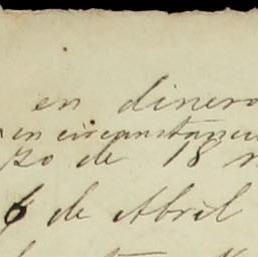 en dinero
en circunstancia
zo de 18 m
6 de Abril